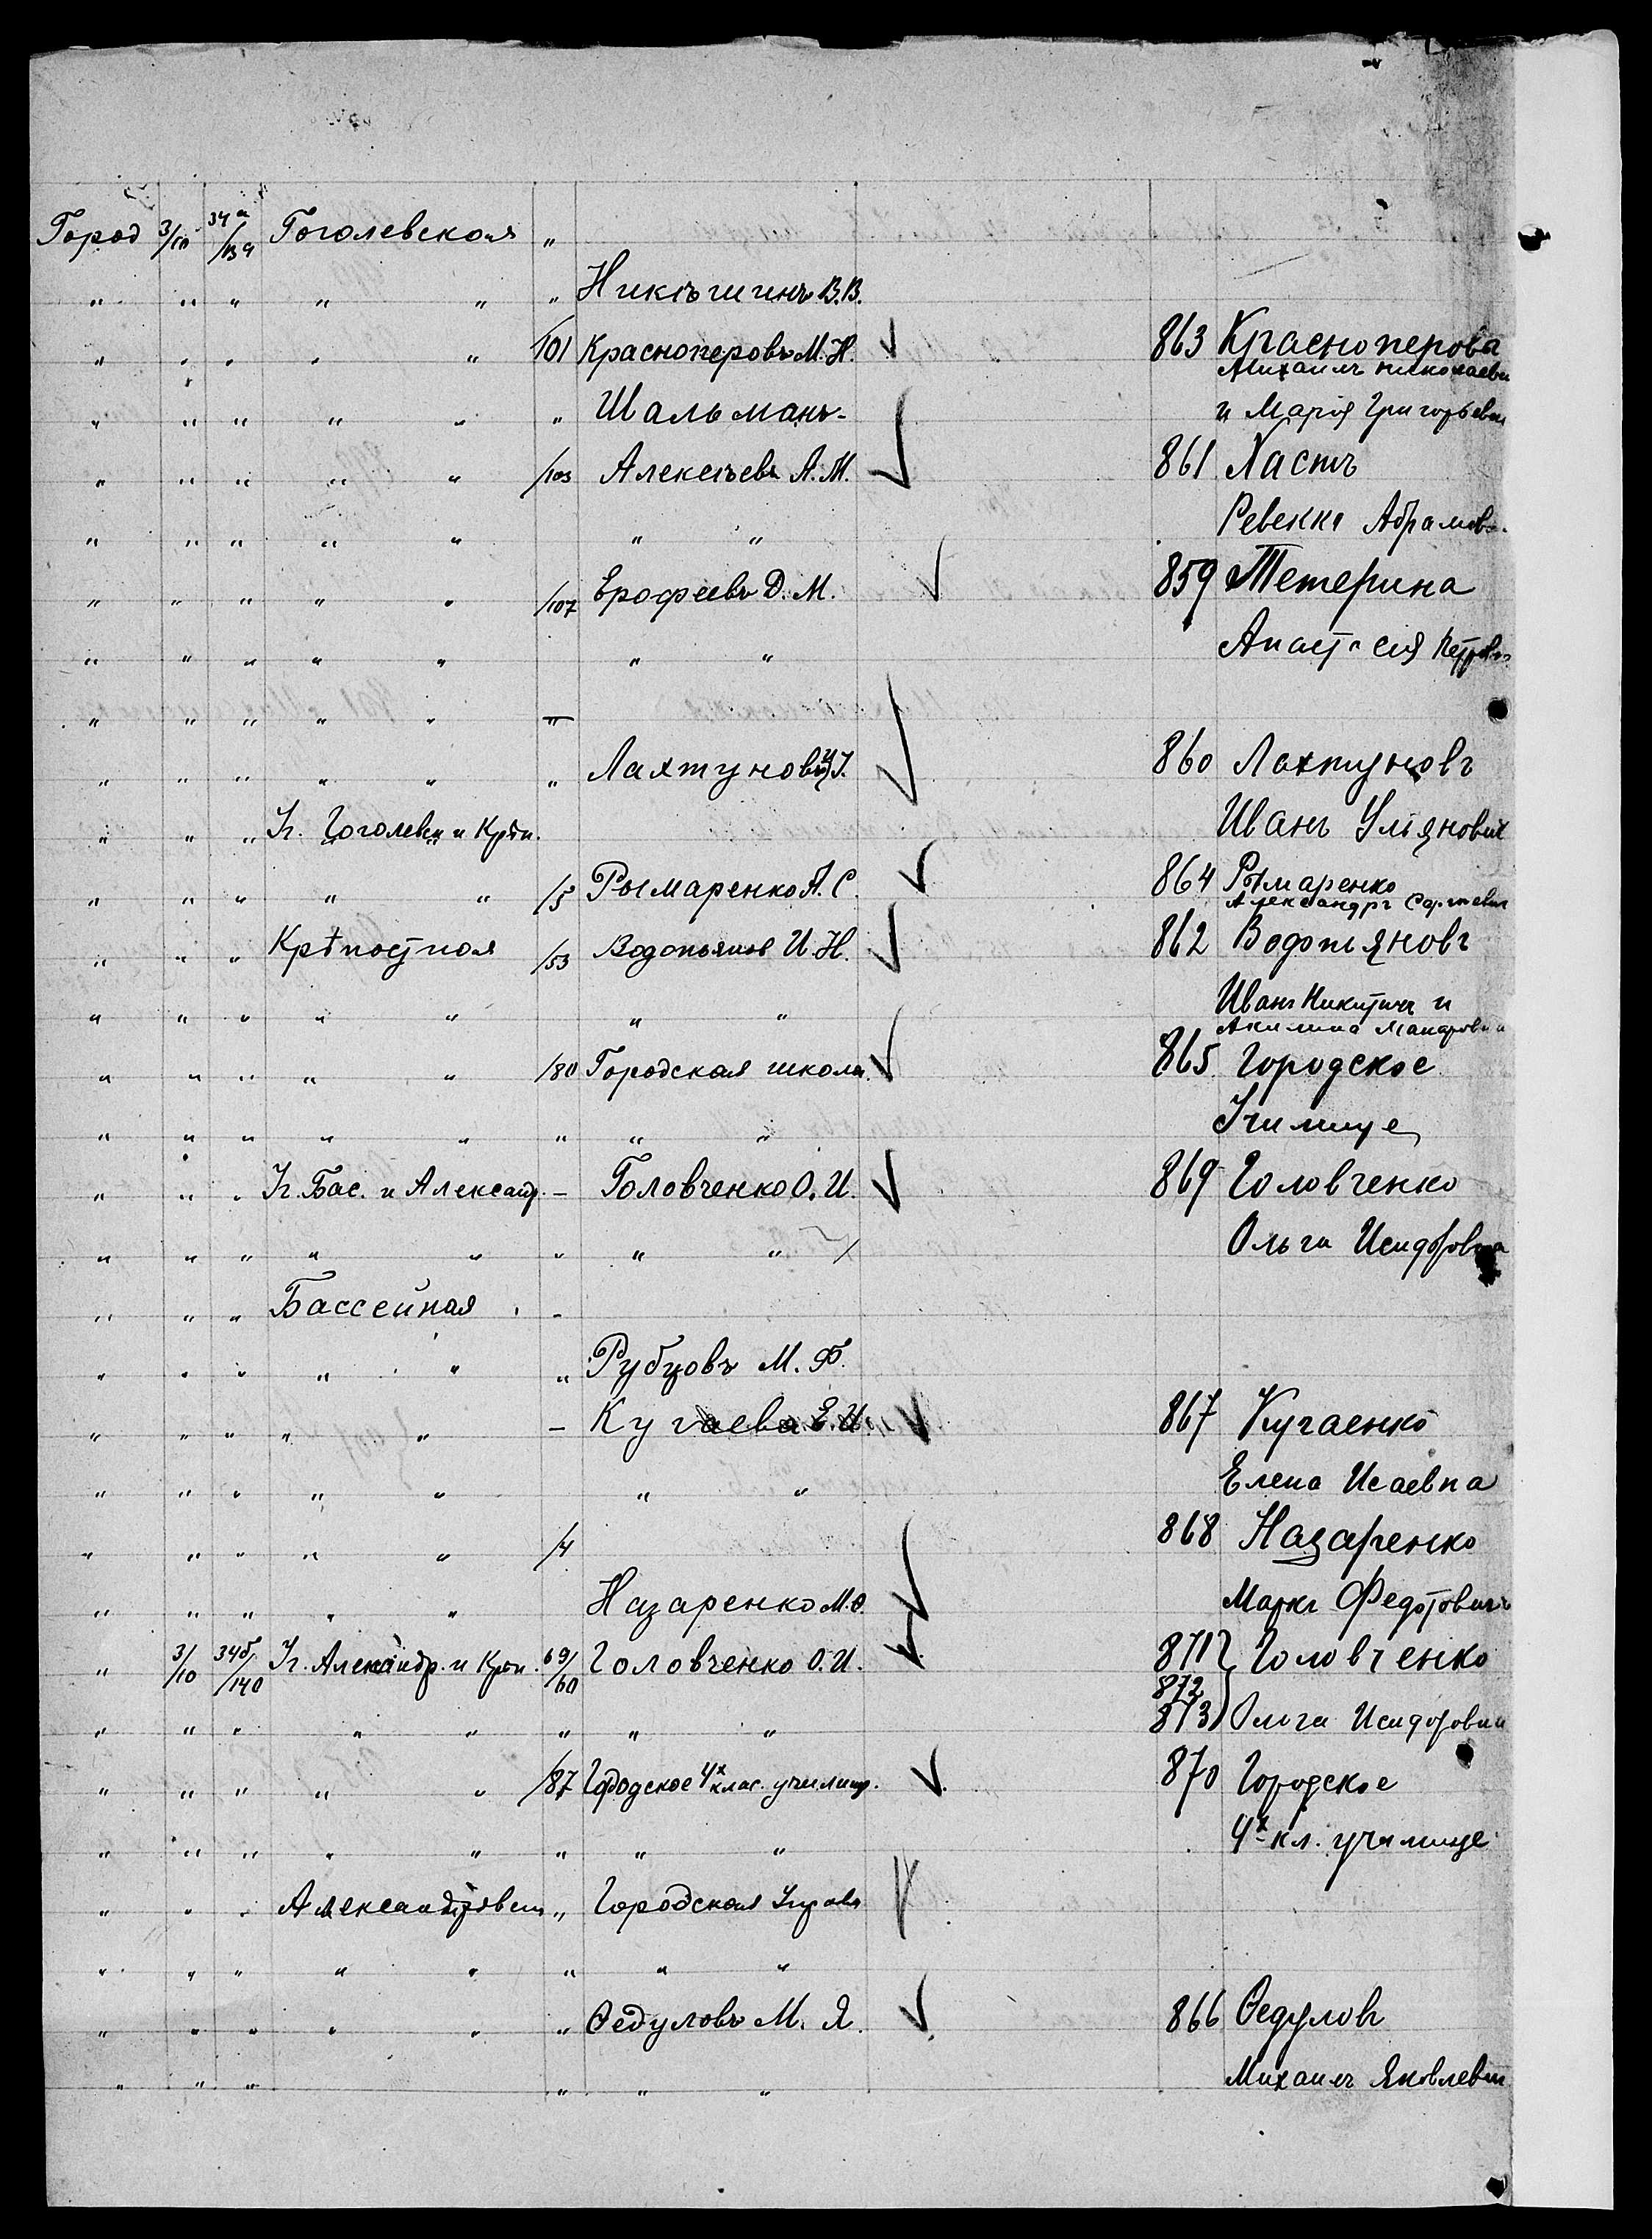 Город 3/10 34а/139 Гоголевская "
" " " " " " Никѣшинъ В.В.
" " " " " /101 Красноперовъ М.Н. 863 Красноперова
Михаилъ Николаеви
" " " " " " Шальманъ- и Марія Григорьевн
" " " " " /103 Алексѣевъ А.М. 861 Хастъ
" " " " " " " Ревекка Абрамов.
" " " " " /107 Ерофеевъ Д.М. 859 Тетерина
" " " " " " " Анастасія Петров
" " " " " "
" " " " " " Лахтуновъ И.У. 860 Лахтуновъ
" " " Уг. Гоголевск и Крѣп. Иванъ Уліяновичъ
" " " " " /5 Рымаренко А.С. 864 Рымаренко
Александръ
" " " Крѣпостная /53 Водопьянов И.Н. 862 Водопьяновъ
" " " " " " " Иванъ Никитичъ и
Акилина Макаровна
" " " " " /80 Городская школа. 865 Городское
" " " " " " " " Училище
" " " Уг. Бас. и Александ. - Головченко О.И. 869 Головченко
" " " " " " " " Ольга Исидоровна
" " " Бассейная -
" " " " " " Рубцовъ М.Ф.
" " " " " - Кугаева Е.И. 867 Кугаенко
" " " " " " " Елена Исаевна
" " " " " /4 868 Назаренко
" " " " " Назаренко М.Ѳ. Маркъ Федотовичъ
" 3/10 34б/140 Уг. Александр. и Крѣп. 69/60 Головченко О.И. 871 } Головченко
872
" " " " " " " " 873 Ольга Исидоровна
" " " " " /87 Городское 4х клас. училищ. 870 Городское
" " " " " " " " 4х кл. училище
" " " Александровск " Городская Управа
" " " " " " " "
" " " " " " Ѳедуловъ М. Я. 866 Ѳедуловъ
" " " " " " Михаилъ Яковлевич